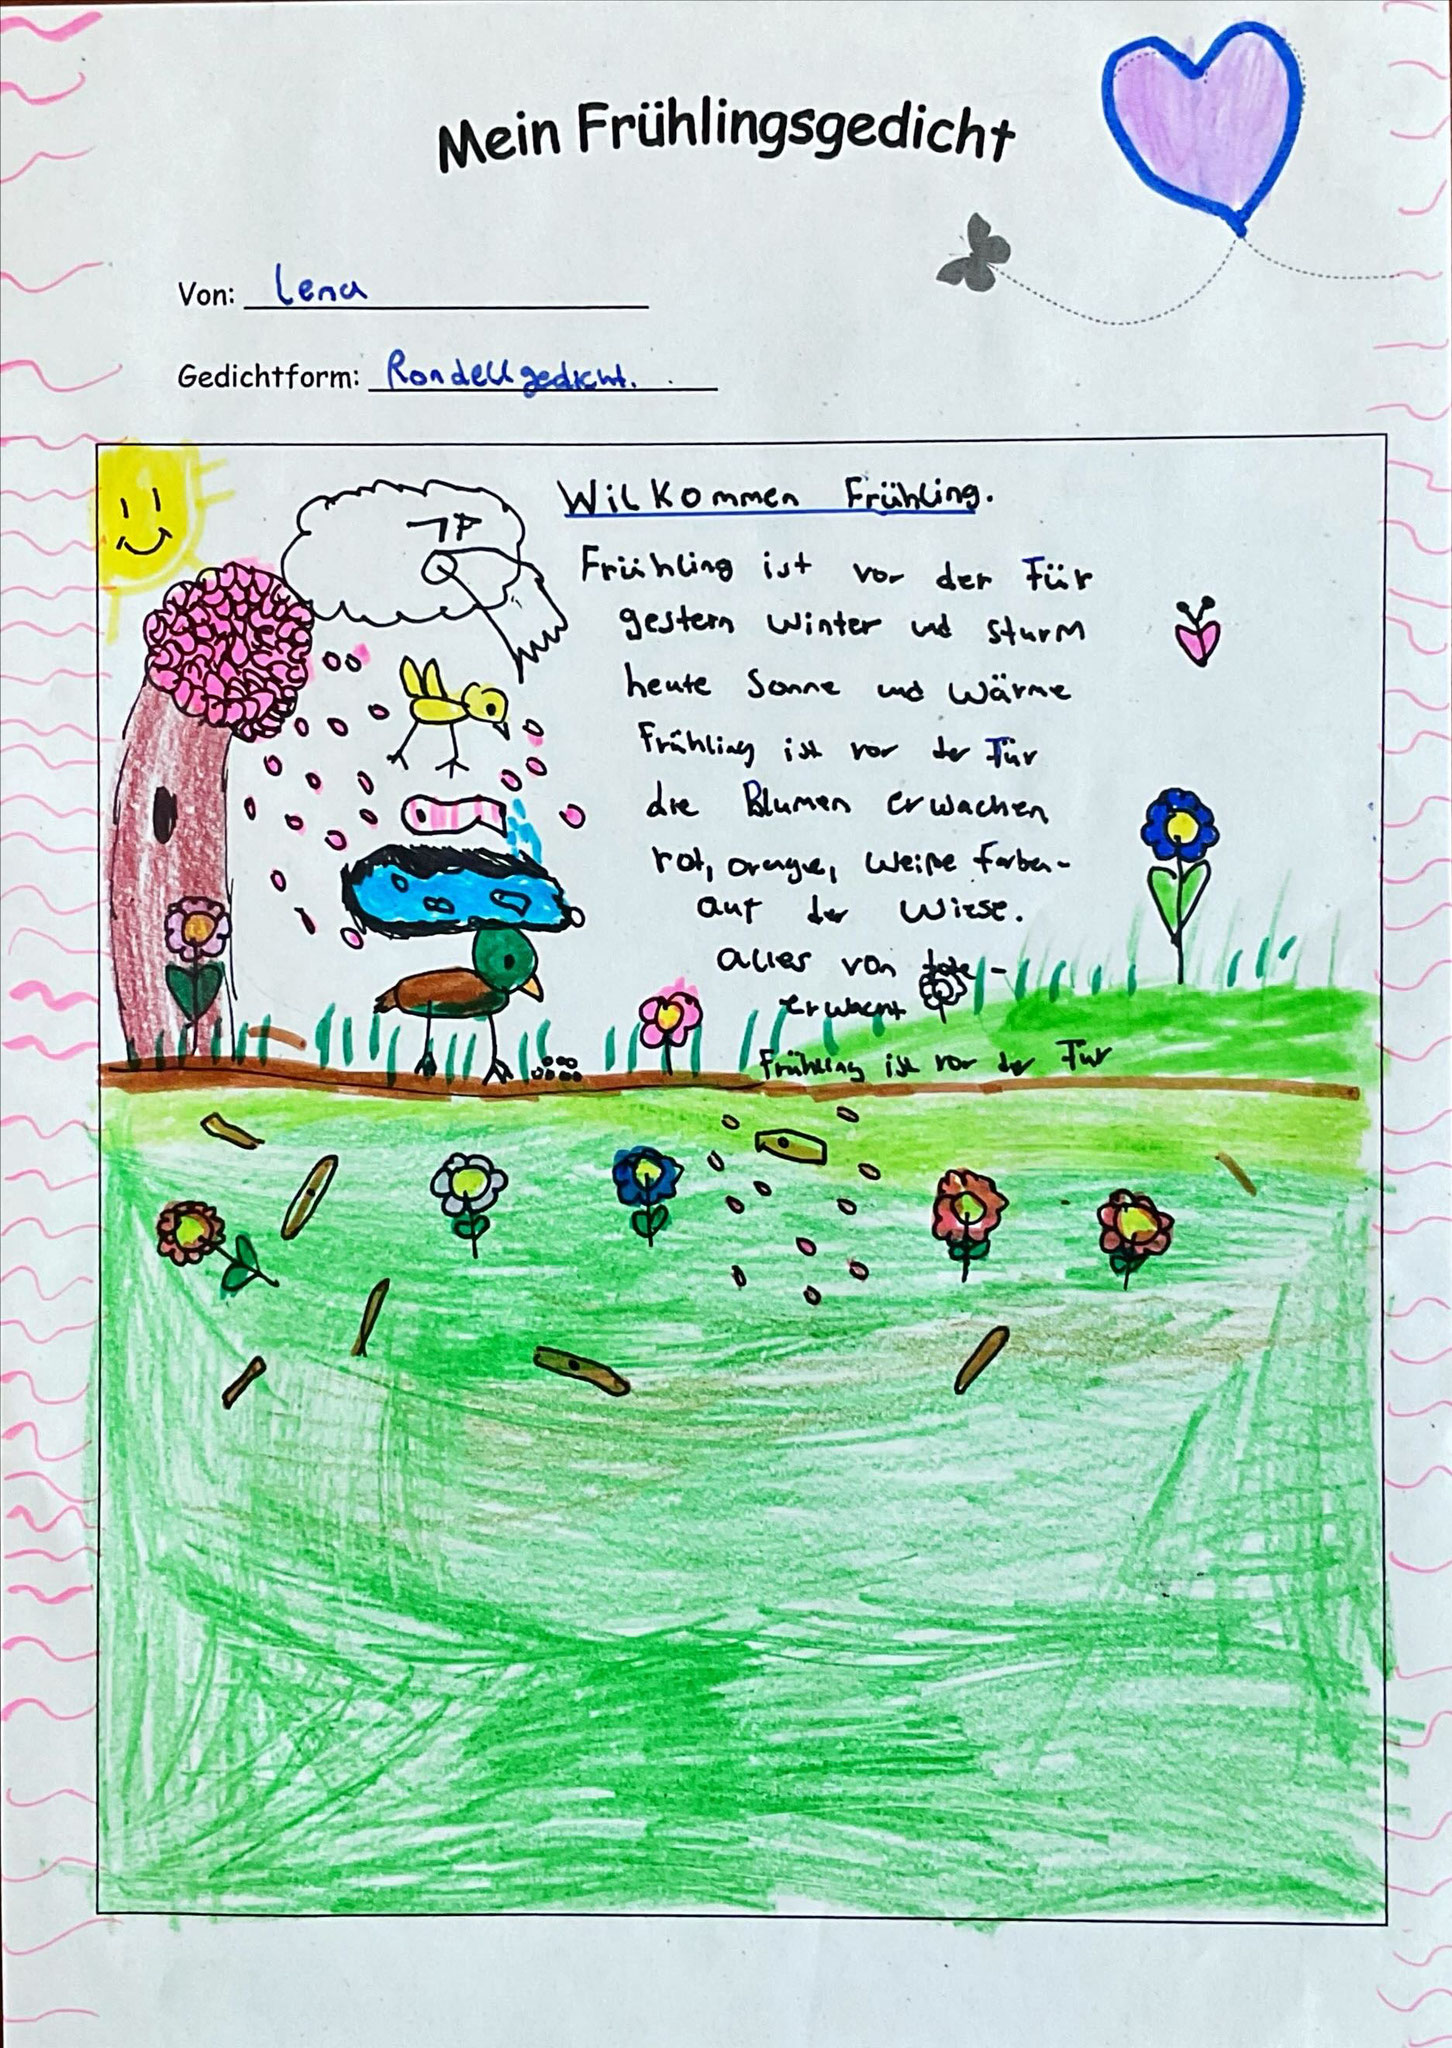 Mein Frühlingsgedicht
Von: Lena
Gedichtform: Rondellgedicht.
Wilkommen Frühling.
Frühling ist vor der Tür
gestern Winter und sturm
heute Sonne und Wärme
Frühling ist vor der Tür
die Blumen erwachen
rot, orange, weiße Farben-
auf der Wiese.
alles von
erwacht
Frühling ist vor der Tür